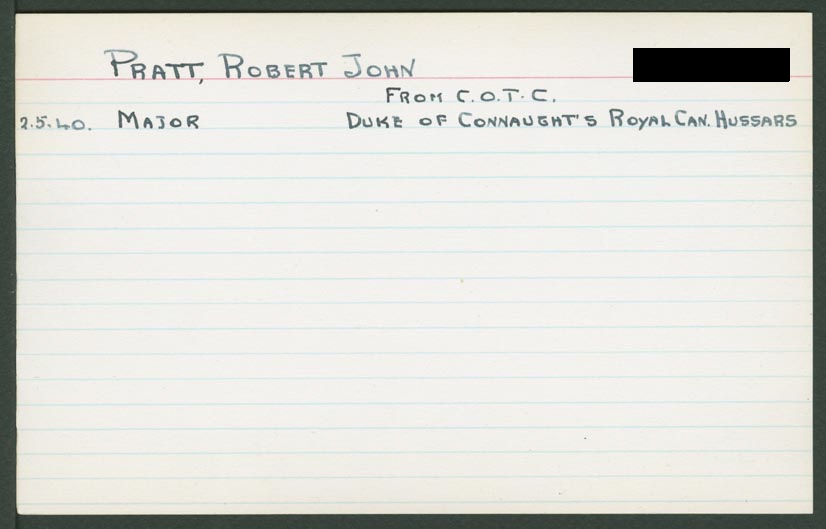 PRATT, ROBERT JOHN
FROM C.O.T.C.
2.5.40. MAJOR DUKE OF CONNAUGHT'S ROYAL CAN. HUSSARS